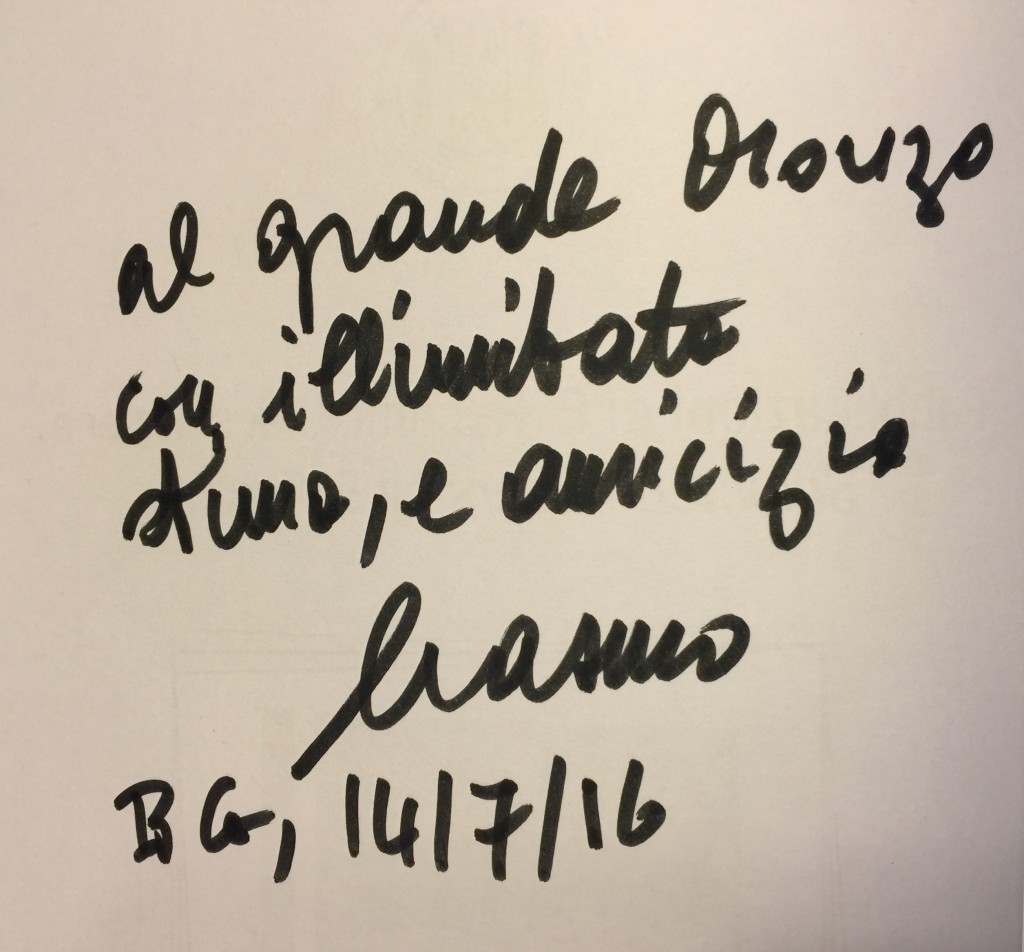 al grande Oronzo
con illimitata
stima, e amicizia
Erasmo
BG, 14/7/16